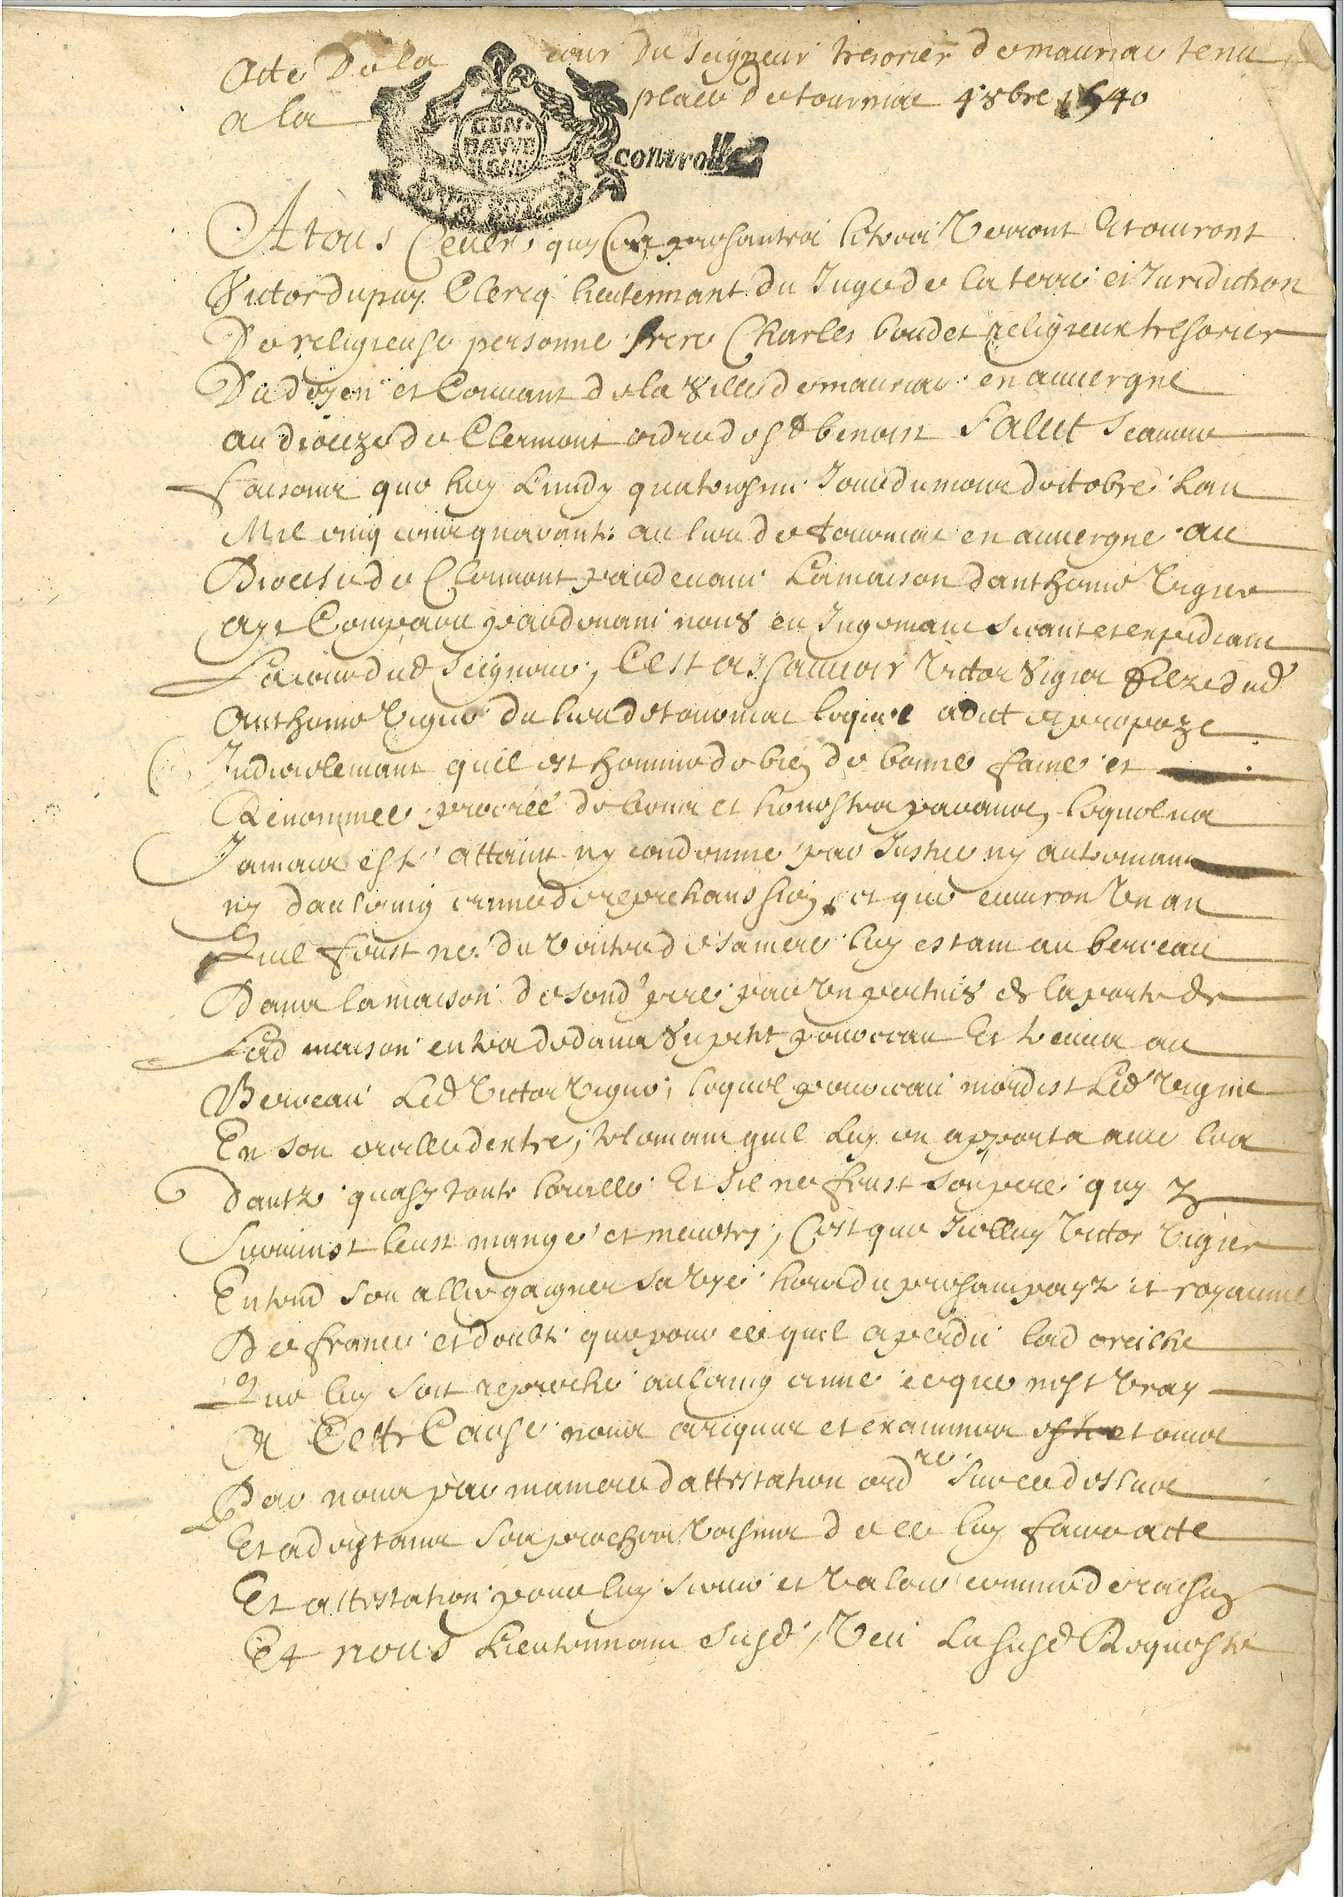 Acte De la cour Du seigneur tresorier de mauriac tenu
a la place de tourniac 4 8bre 1540
GEN
controlle
A tous Ceulx quy Ces presantes lettres Verront Et ouront
Victor dupuy Clercq lieutennant du Juge de la terre et Juridiction
De religieuse personne frere Charles boudet religieux tresorier
Du doyen et Couvant de la Ville de mauriac en auvergne
au dioceze de Clermont ordre de st benoist Salut scavoir
faisons que huy Lundy quatriesme Jour du mois doctobre Lan
Mil cinq cens quarante au lieu de tourniac en auvergne au
Diocese de Clermont pardevant La maison danthoine Vigier
Ayt Comparu pardevant nous en Jugemant seant et expediant
La cour dud Seigneur, Cest assavoir Victor Vigier filz dud
Anthoine Vigier du lieu de tourniac lequel a dict et propoze
Judiciellemant quil est homme de bien de bonne fame et
Renommee procréé de bons et honestes parans, lequel na
Jamais esté attaint ny condemne par Justice ny autremant
ny daulcung crime de reprehanssion, et que environ Un an
Quil foust né du Ventre de sa mere luy estant au berceau
Dans la maison de sond pere par Un pertuis de la porte de
Lad maison entra dedans Un petit pourceau Et tenua au
Berceau Led Victor Vigier, lequel pourceau mordist Led Vigier
En son oreille dextre, tellemant quil Luy en apporta avec les
dantz quasy toute loreille Et sil ne foust son pere quy y
Survinst leust mangé et meurtry, Cest que Icelluy Victor Vigier
Entend sen aller gaigner sa Vye hors du presant pays et royaume
De france et doubte que pour ce quil a perdu lad oreilhe
Que luy soit reproché aulcung crime ce que nest Vray
A Cette Cause nous a requis et examiner et ouir
Par nous par maniere dattestation ordre sur ce dessus
Et adviptans son prochis Voisins de ce luy faire acte
Et attestation pour luy servir et Valoir comme de raison
Et nous Lieutennant susd, Veu La susd Requeste